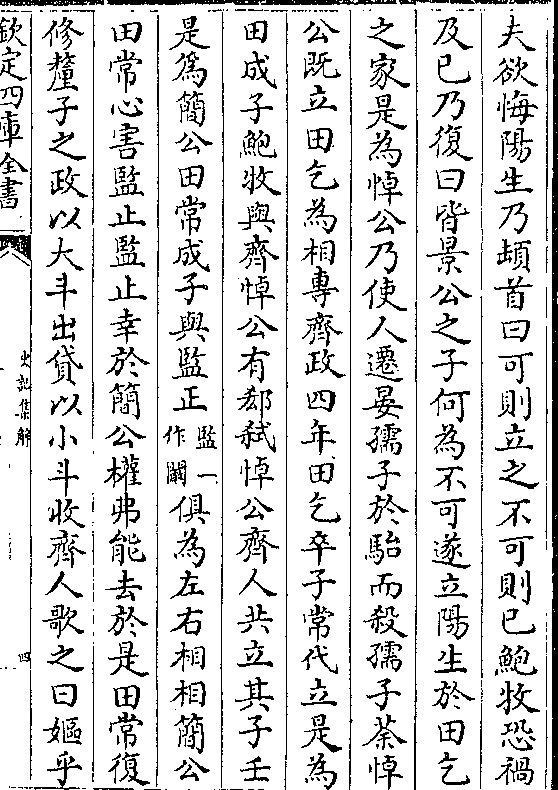 夫欲悔陽生乃頓首曰可則立之不可則已鮑牧恐禍
及已乃復曰皆景公之子何為不可遂立陽生於田乞
之家是為悼公乃使人遷晏孺子於駘而殺孺子荼悼
公既立田乞為相專齊政四年田乞卒子常代立是為
田成子鮑牧與齊悼公有郄弑悼公齊人共立其子壬
是為簡公田常成子與監止監一作闞俱為左右相相簡公
田常心害監止監止幸於簡公權弗能去於是田常復
修釐子之政以大斗出貸以小斗收齊人歌之曰嫗乎
欽定四庫全書
史記集解
四